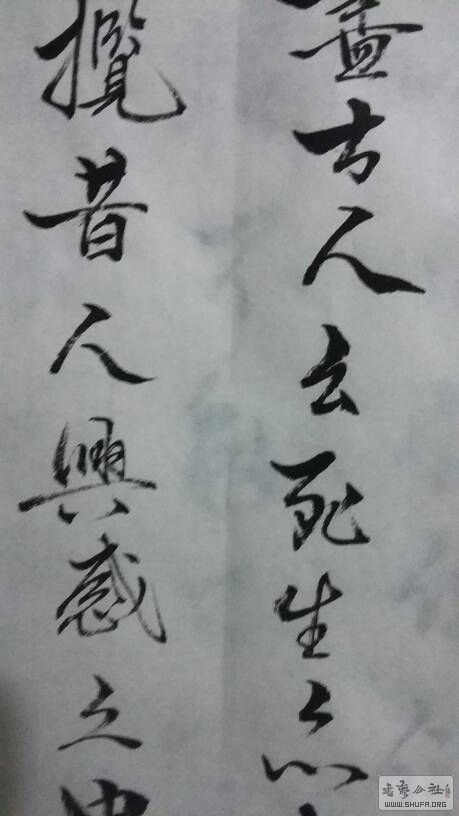 盡古人云死生亦
攬昔人興感之由
書藝公社
WWW.SHUFA.ORG